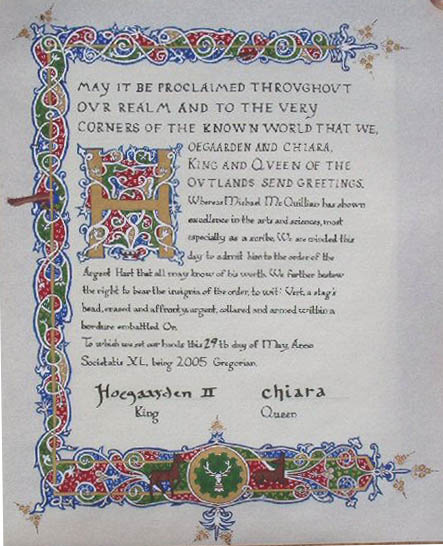 MAY IT BE PROCLAIMED THROVGHOVT
OVR REALM AND TO THE VERY
CORNERS OF THE KNOWN WORLD THAT WE,
HOEGAARDEN AND CHIARA,
KING AND QVEEN OF THE
OVTLANDS SEND GREETINGS.
Whereas Michael McQuillian has shown
excellence in the arts and sciences, most
especially as a scribe, We are minded this
day to admit him to the order of the
Argent Hart that all may know of his worth. We further bestow
the right to bear the insignia of the order, to wit: Vert, a stag's
head, erased and affronty, argent, collared and armed within a
bordure embattled Or.
To which we set our hands this 29th day of May, Anno
Societatis XL, being 2005 Gregorian.
Hoegaarden II chiara
King Queen